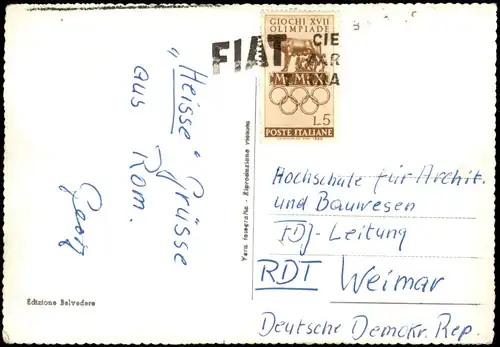 „Heisse" Grüsse
aus Rom.
Georg
Edizione Belvedere
Vera fotografia - Riproduzione vietata
FIAT
CIE
AR
MA
GIOCHI XVII
OLIMPIADE
MCMLX
L.5
POSTE ITALIANE
Hochschule für Archit.
und Bauwesen
FDJ-Leitung
RDT Weimar
Deutsche Demokr. Rep.